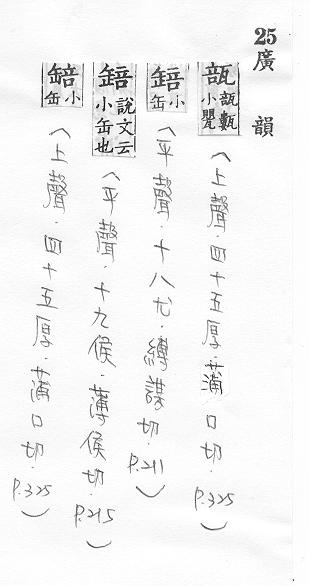 25 廣韻
瓿 瓿甊小甖
（上聲．四十五厚．蒲口切．P.325）
䍌 小缶
（平聲．十八尤．縛謀切．P.211）
䍌 說文云小缶也
（平聲．十九侯．薄侯切．P.215）
䍌 小缶
（上聲．四十五厚．蒲口切．P.325）